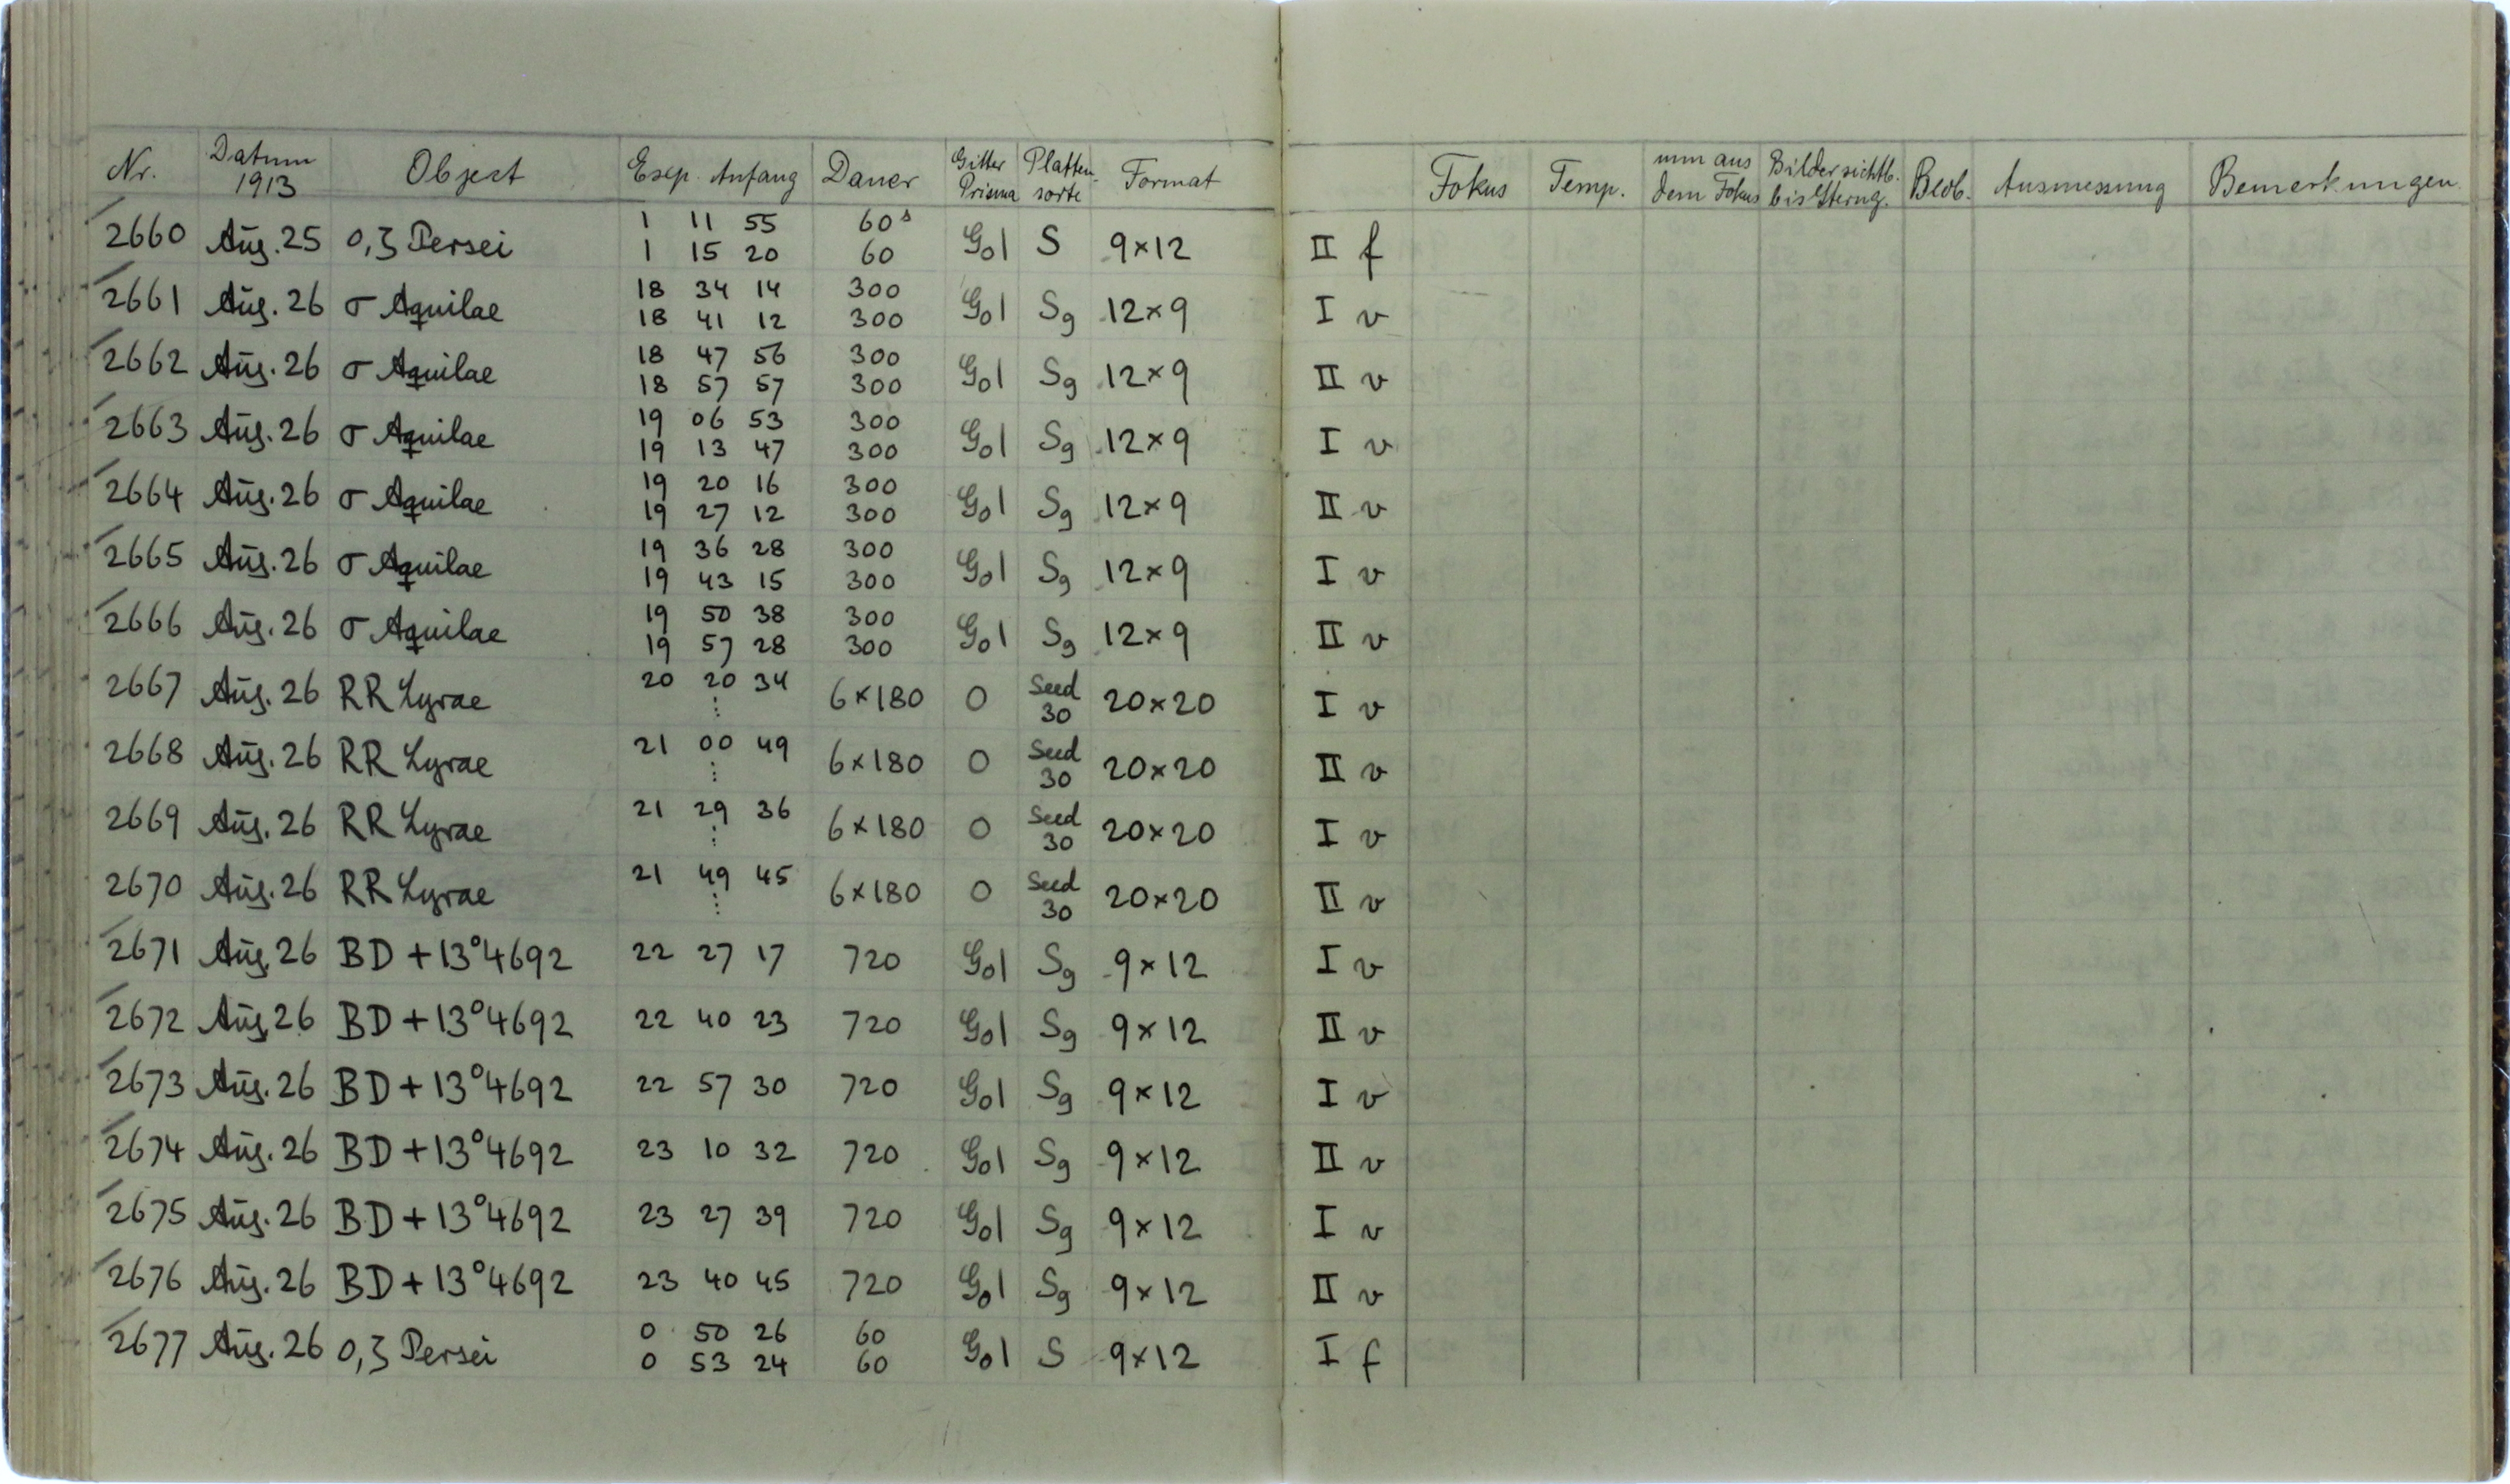 Nr. Datum 1913 Object Exp. Anfang Dauer Gitter Prisma Platten-sorte Format Fokus Temp. mm aus dem Fokus Bilder sichtb. bis Sterng. Beob. Ausmessung Bemerkungen
2660 Aug. 25 o,ζ Persei 1 11 55 60s G01 S 9×12 II f
1 15 20 60
2661 Aug. 26 σ Aquilae 18 34 14 300 G01 Sg 12×9 I v
18 41 12 300
2662 Aug. 26 σ Aquilae 18 47 56 300 G01 Sg 12×9 II v
18 57 57 300
2663 Aug. 26 σ Aquilae 19 06 53 300 G01 Sg 12×9 I v
19 13 47 300
2664 Aug. 26 σ Aquilae 19 20 16 300 G01 Sg 12×9 II v
19 27 12 300
2665 Aug. 26 σ Aquilae 19 36 28 300 G01 Sg 12×9 I v
19 43 15 300
2666 Aug. 26 σ Aquilae 19 50 38 300 G01 Sg 12×9 II v
19 57 28 300
2667 Aug. 26 RR Lyrae 20 20 34 6×180 0 Seed 30 20×20 I v
⋮
2668 Aug. 26 RR Lyrae 21 00 49 6×180 0 Seed 30 20×20 II v
⋮
2669 Aug. 26 RR Lyrae 21 29 36 6×180 0 Seed 30 20×20 I v
⋮
2670 Aug. 26 RR Lyrae 21 49 45 6×180 0 Seed 30 20×20 II v
⋮
2671 Aug. 26 BD +13°4692 22 27 17 720 G01 Sg 9×12 I v
2672 Aug. 26 BD +13°4692 22 40 23 720 G01 Sg 9×12 II v
2673 Aug. 26 BD +13°4692 22 57 30 720 G01 Sg 9×12 I v
2674 Aug. 26 BD +13°4692 23 10 32 720 G01 Sg 9×12 II v
2675 Aug. 26 BD +13°4692 23 27 39 720 G01 Sg 9×12 I v
2676 Aug. 26 BD +13°4692 23 40 45 720 G01 Sg 9×12 II v
2677 Aug. 26 o,ζ Persei 0 50 26 60 G01 S 9×12 I f
0 53 24 60